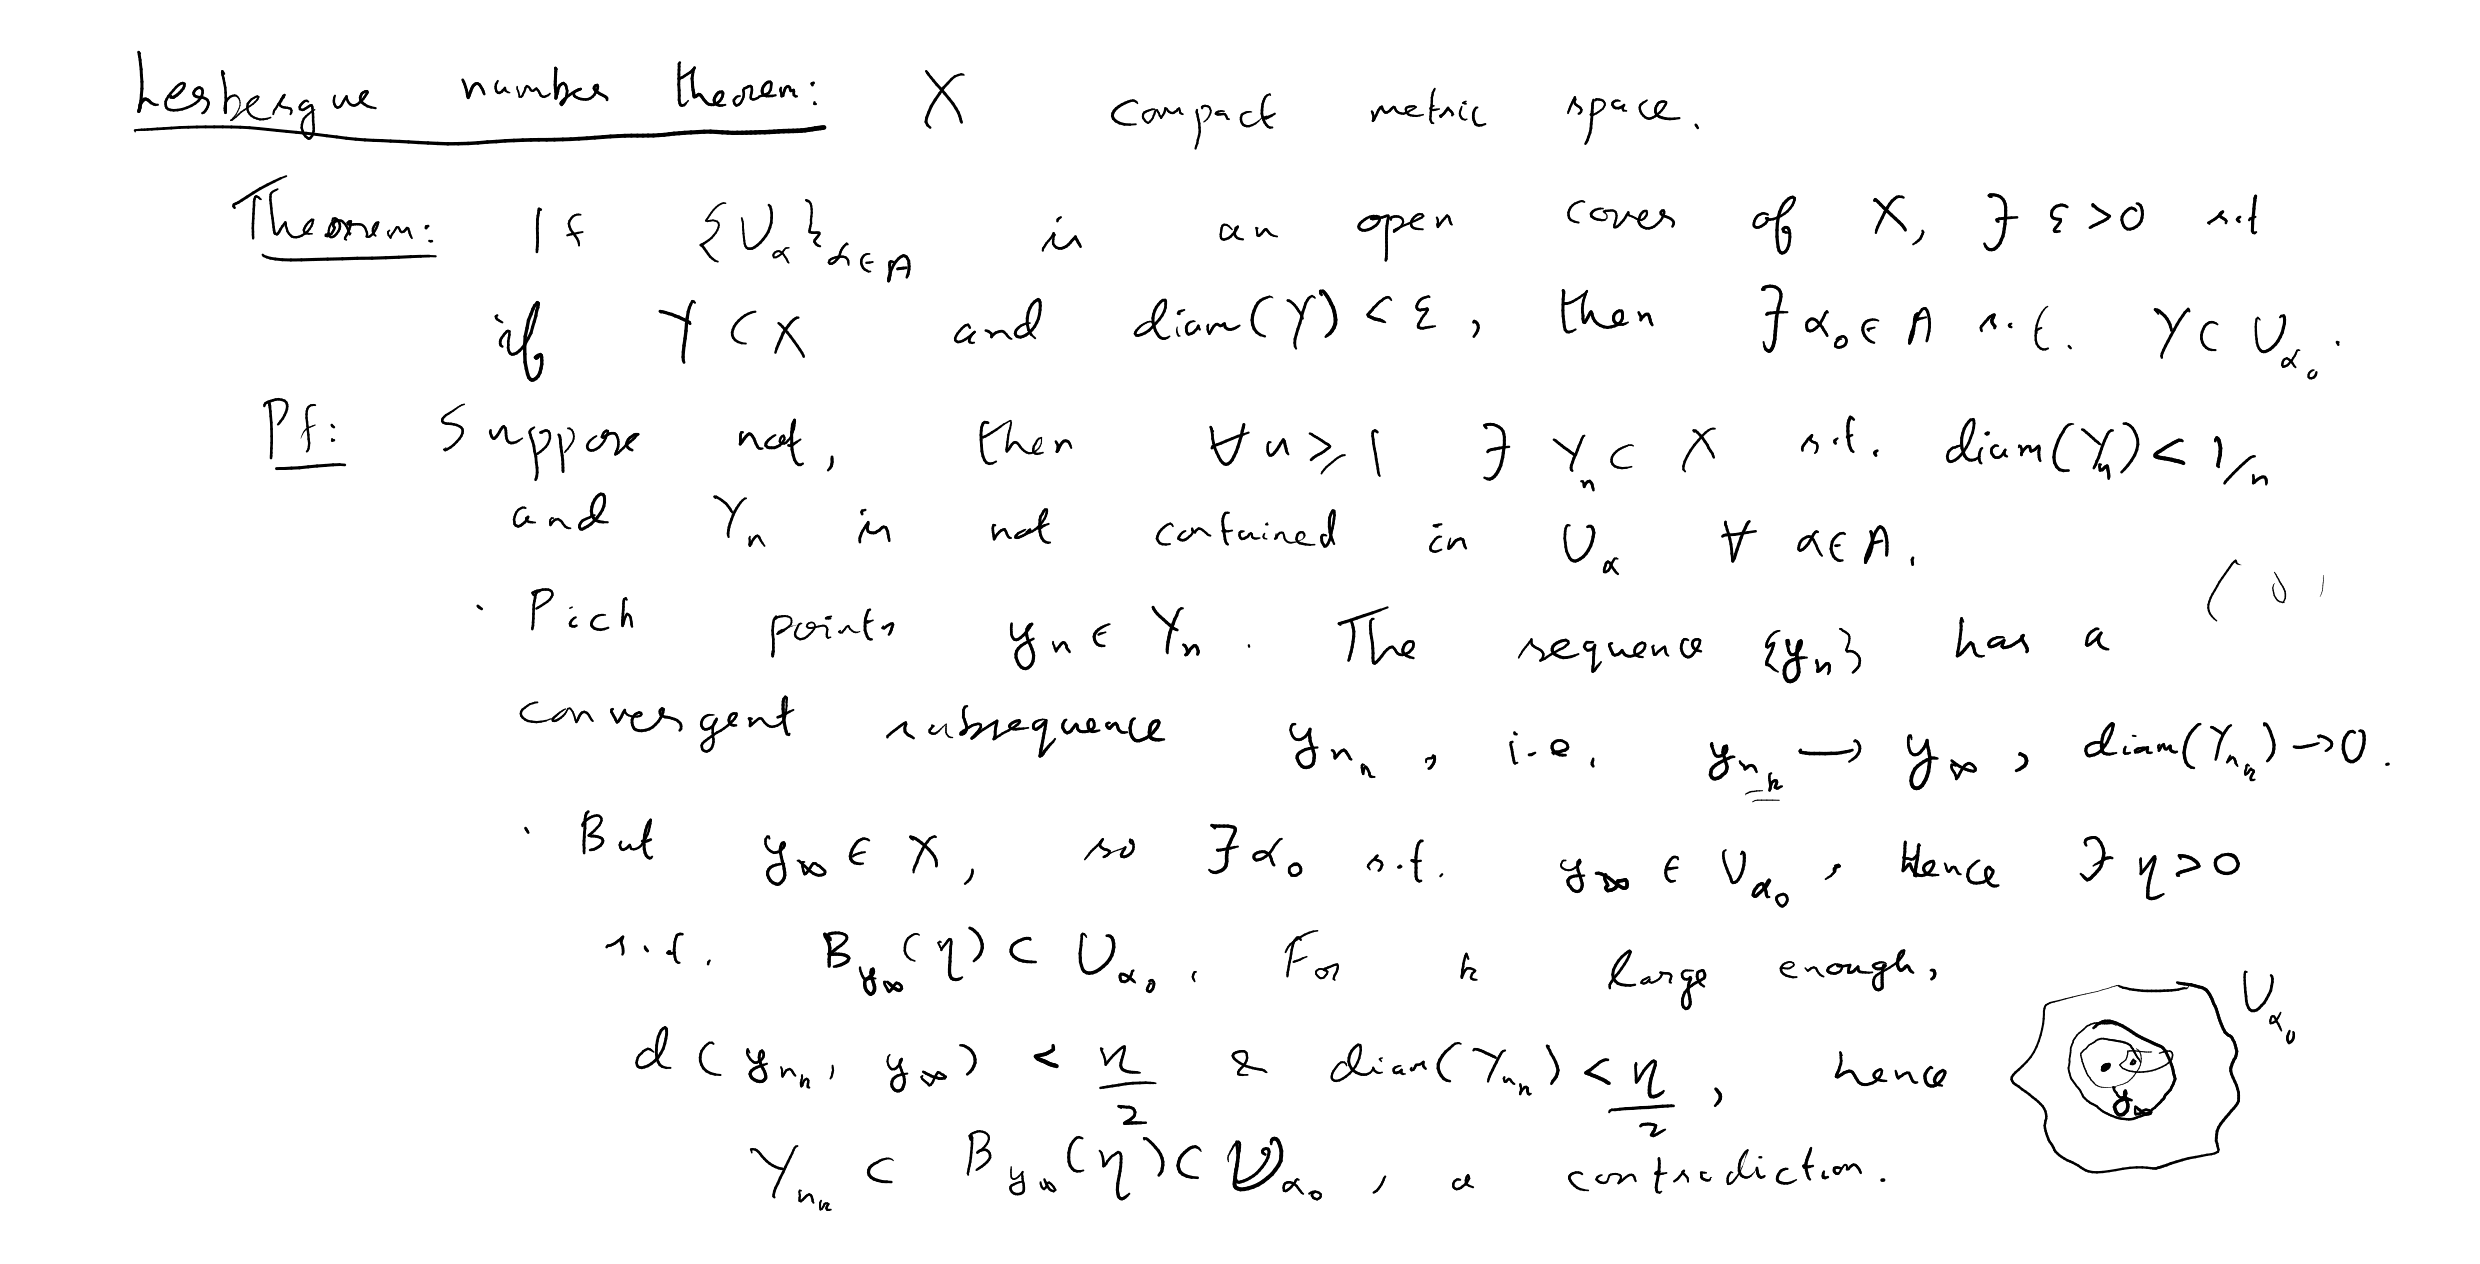 Lesbesgue number theorem: X compact metric space.
Theorem: If {U_α}_{α∈A} is an open cover of X, ∃ ε>0 s.t
if Y ⊂ X and diam(Y) < ε, then ∃ α₀ ∈ A s.t. Y ⊂ U_{α₀}.
Pf: Suppose not, then ∀ n ≥ 1 ∃ Y_n ⊂ X s.t. diam(Y_n) < 1/n
and Y_n is not contained in U_α ∀ α∈A.
· Pick points y_n ∈ Y_n. The sequence {y_n} has a
convergent subsequence y_{n_k}, i.e. y_{n_k} → y_∞, diam(Y_{n_k}) → 0.
· But y_∞ ∈ X, so ∃ α₀ s.t. y_∞ ∈ U_{α₀}, Hence ∃ η>0
s.t. B_{y_∞}(η) ⊂ U_{α₀}. For k large enough,
U_{α₀}
d(y_{n_k}, y_∞) < η/2 & diam(Y_{n_k}) < η/2, hence
y_∞
Y_{n_k} ⊂ B_{y_∞}(η) ⊂ U_{α₀}, a contradiction.